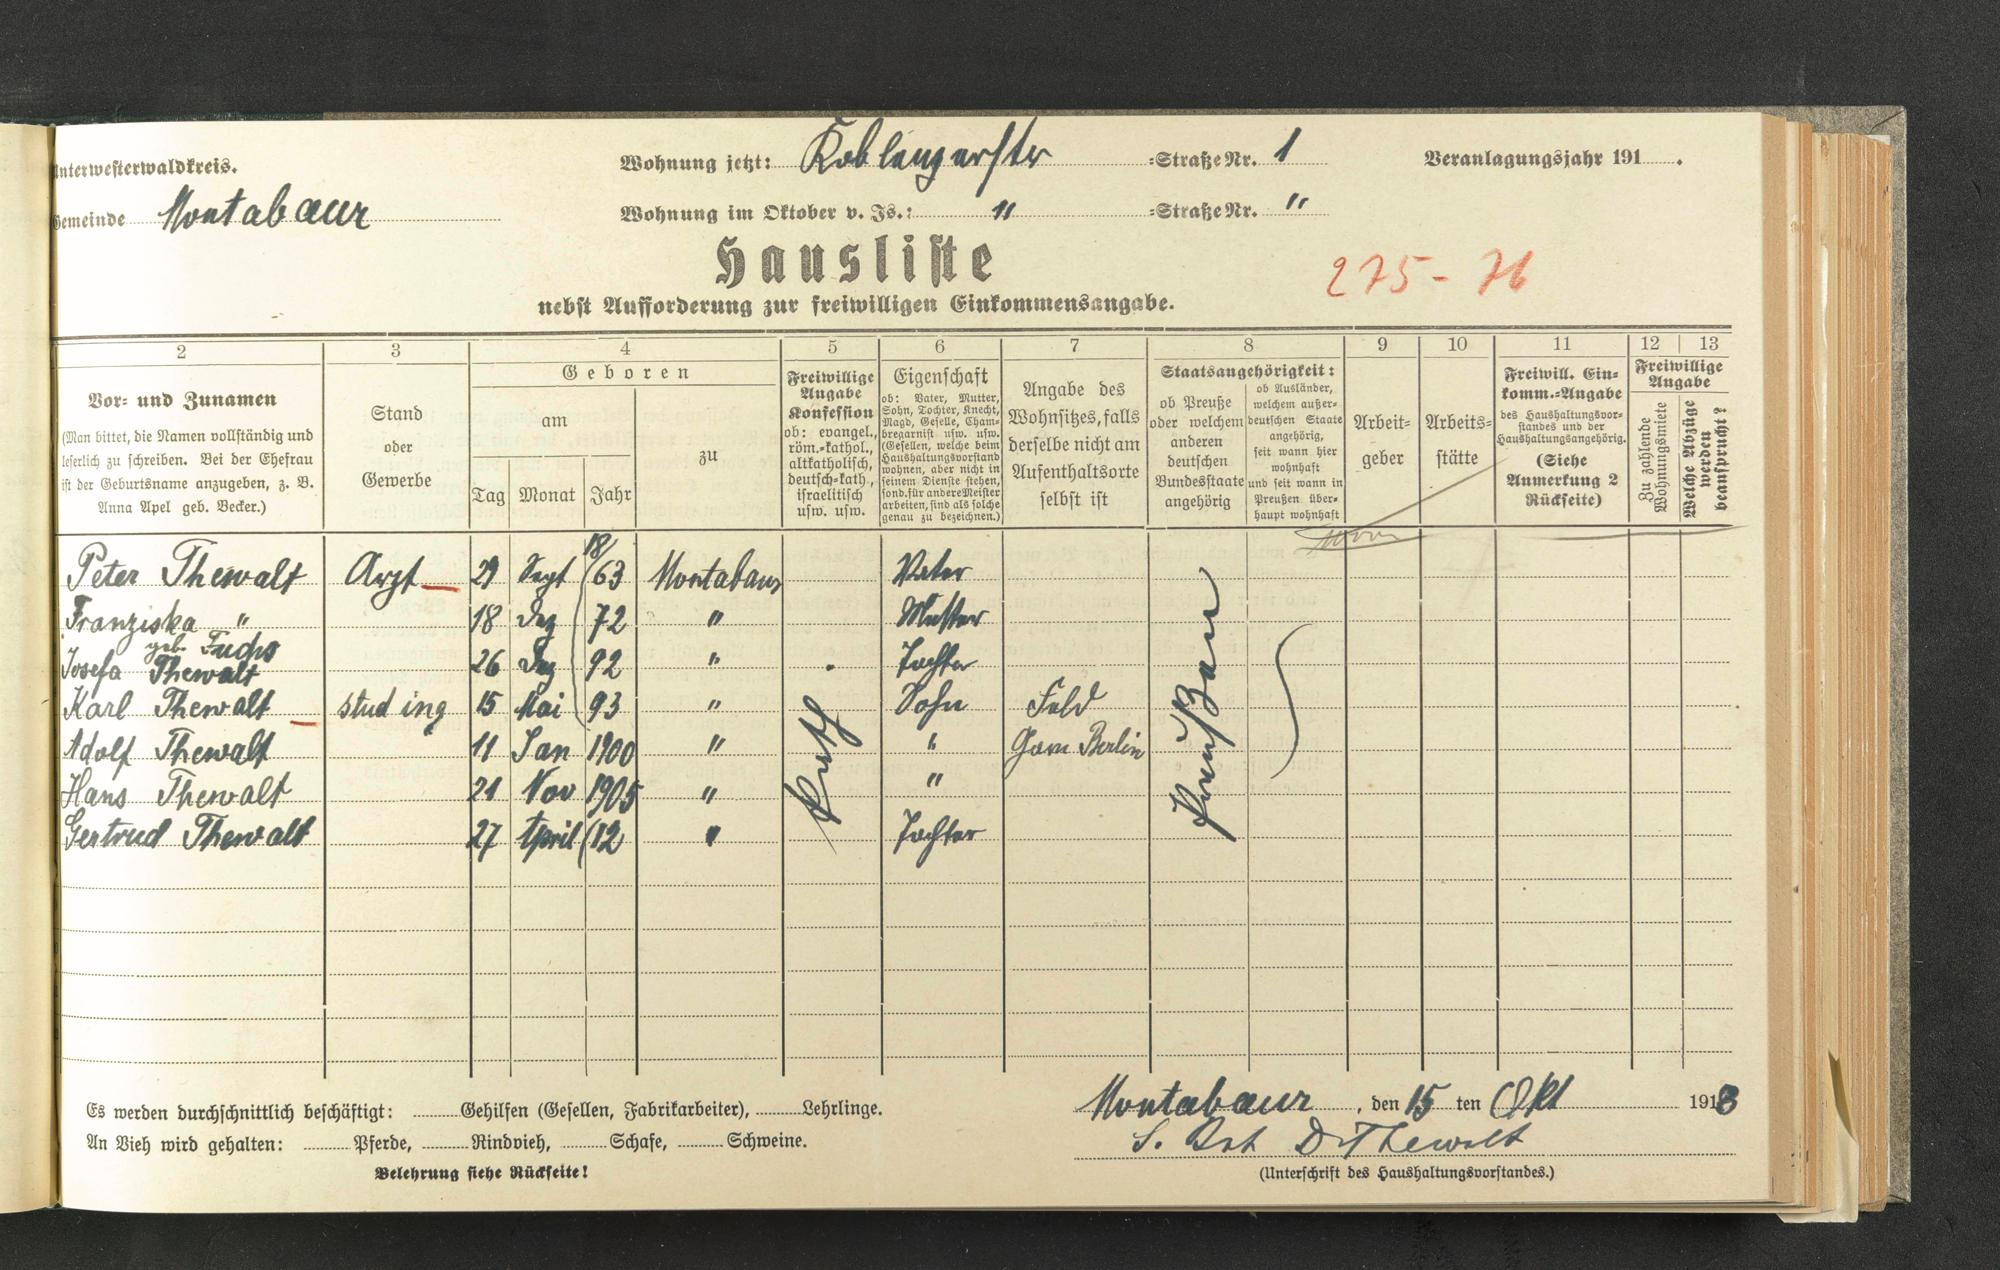 Unterwesterwaldkreis.
Gemeinde Montabaur
Wohnung jetzt: Koblenzerstr =Straße Nr. 1
Wohnung im Oktober v. Js.: " =Straße Nr. "
Veranlagungsjahr 191 .
Hausliste
nebst Aufforderung zur freiwilligen Einkommensangabe.
275-76
2 3 4 5 6 7 8 9 10 11 12 13
Vor- und Zunamen
(Man bittet, die Namen vollständig und
leserlich zu schreiben. Bei der Ehefrau
ist der Geburtsname anzugeben, z. B.
Anna Apel geb. Becker.)
Stand
oder
Gewerbe
Geboren
am
Tag Monat Jahr
zu
Freiwillige
Angabe
Konfession
ob: evangel.,
röm.-kathol.,
altkatholisch,
deutsch-kath.,
israelitisch
usw. usw.
Eigenschaft
ob: Vater, Mutter,
Sohn, Tochter, Knecht,
Magd, Geselle, Cham-
bregarnist usw. usw.
(Gesellen, welche beim
Haushaltungsvorstand
wohnen, aber nicht in
seinem Dienste stehen,
sond. für andere Meister
arbeiten, sind als solche
genau zu bezeichnen.)
Angabe des
Wohnsitzes, falls
derselbe nicht am
Aufenthaltsorte
selbst ist
Staatsangehörigkeit:
ob Preuße
oder welchem
anderen
deutschen
Bundesstaate
angehörig
ob Ausländer,
welchem außer-
deutschen Staate
angehörig,
seit wann hier
wohnhaft
und seit wann in
Preußen über-
haupt wohnhaft
Arbeit-
geber
Arbeits-
stätte
Freiwill. Ein-
komm.-Angabe
des Haushaltungsvor-
standes und der
Haushaltungsangehörig.
(Siehe
Anmerkung 2
Rückseite)
Freiwillige
Angabe
Zu zahlende
Wohnungsmiete
Welche Abzüge
werden
beansprucht?
18/
Peter Thewalt Arzt 29 Sept 63 Montabaur Vater
Franziska " 18 Dez 72 " Mutter
geb. Fuchs
Josefa Thewalt 26 Dez 92 " Tochter
Karl Thewalt stud ing 15 Mai 93 " Sohn Feld
Adolf Thewalt 11 Jan 1900 " " Garn Berlin
Hans Thewalt 21 Nov 1905 " "
Gertrud Thewalt 27 April 12 " Tochter
Kath
Preußen
Es werden durchschnittlich beschäftigt: Gehilfen (Gesellen, Fabrikarbeiter), Lehrlinge.
An Vieh wird gehalten: Pferde, Rindvieh, Schafe, Schweine.
Belehrung siehe Rückseite!
Montabaur, den 15 ten Okt 1918
Dr Thewalt
(Unterschrift des Haushaltungsvorstandes.)